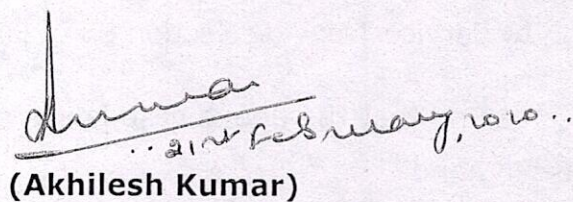 Akumar
..21st February, 2020..
(Akhilesh Kumar)